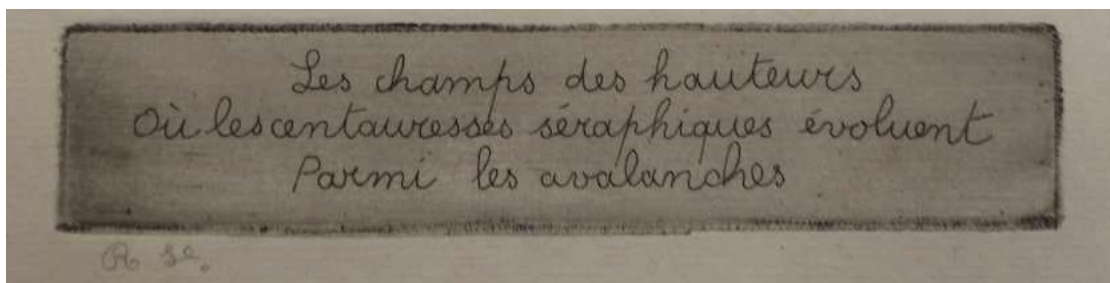 Les champs des hauteurs
Où les centauresses séraphiques évoluent
Parmi les avalanches